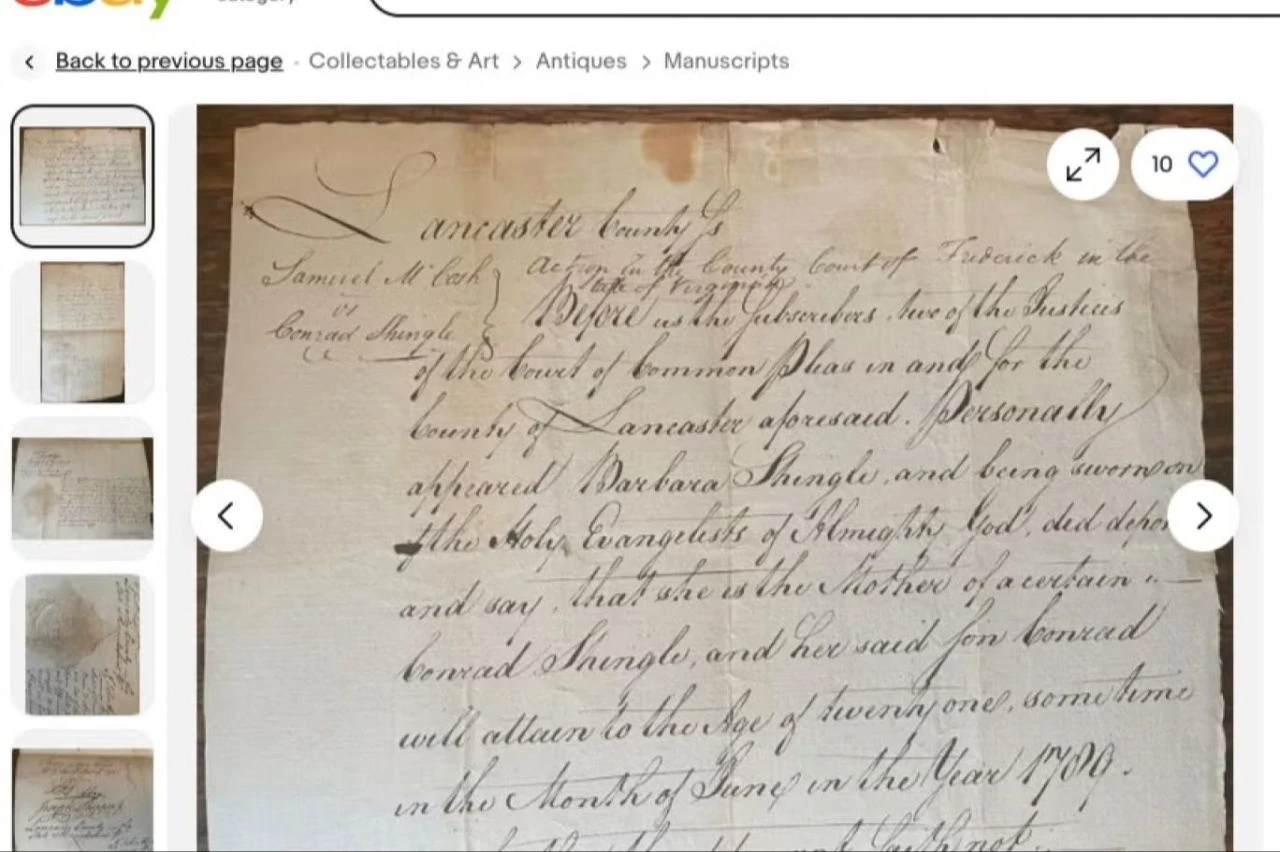 ebay
category
Back to previous page · Collectables & Art > Antiques > Manuscripts
10
Lancaster County Ss
Samuel McCosh
vs
Conrad Shingle
Action in the County Court of Frederick in the
State of Virginia
Before us the Subscribers, two of the Justices
of the Court of Common Pleas in and for the
County of Lancaster aforesaid. Personally
appeared Barbara Shingle, and being sworn on
the Holy Evangelists of Almighty God, did
and say, that she is the Mother of a certain
Conrad Shingle, and her said son Conrad
will attain to the Age of twenty one, some time
in the Month of June in the Year 1789.
not.